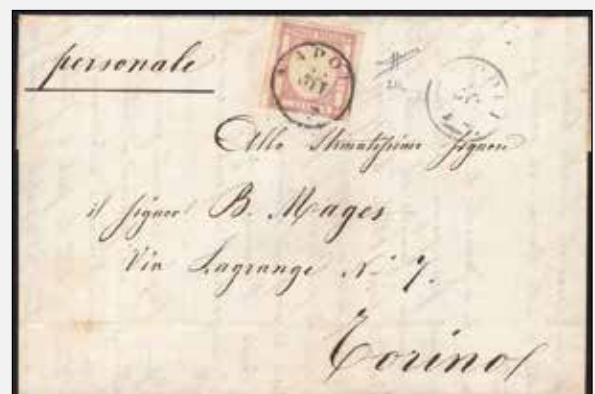 personale
NAPOLI
Allo Stimatissimo Signore
il Signor B. Mages
Via Lagrange N. 7.
Torino